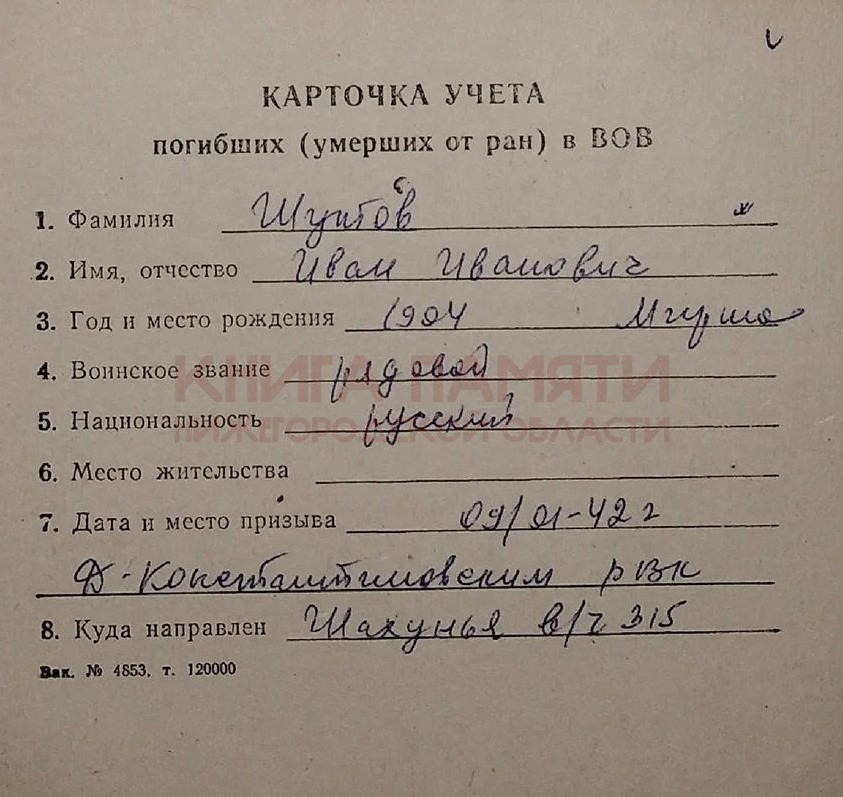 КАРТОЧКА УЧЕТА
погибших (умерших от ран) в ВОВ
1. Фамилия Шутов
2. Имя, отчество Иван Иванович
3. Год и место рождения 1904
4. Воинское звание рядовой
КНИГА ПАМЯТИ
5. Национальность русский
НИЖЕГОРОДСКОЙ ОБЛАСТИ
6. Место жительства
7. Дата и место призыва 09/01-42 г
Д-Константиновским рвк
8. Куда направлен Шахунья в/ч 315
Зак. № 4853. т. 120000